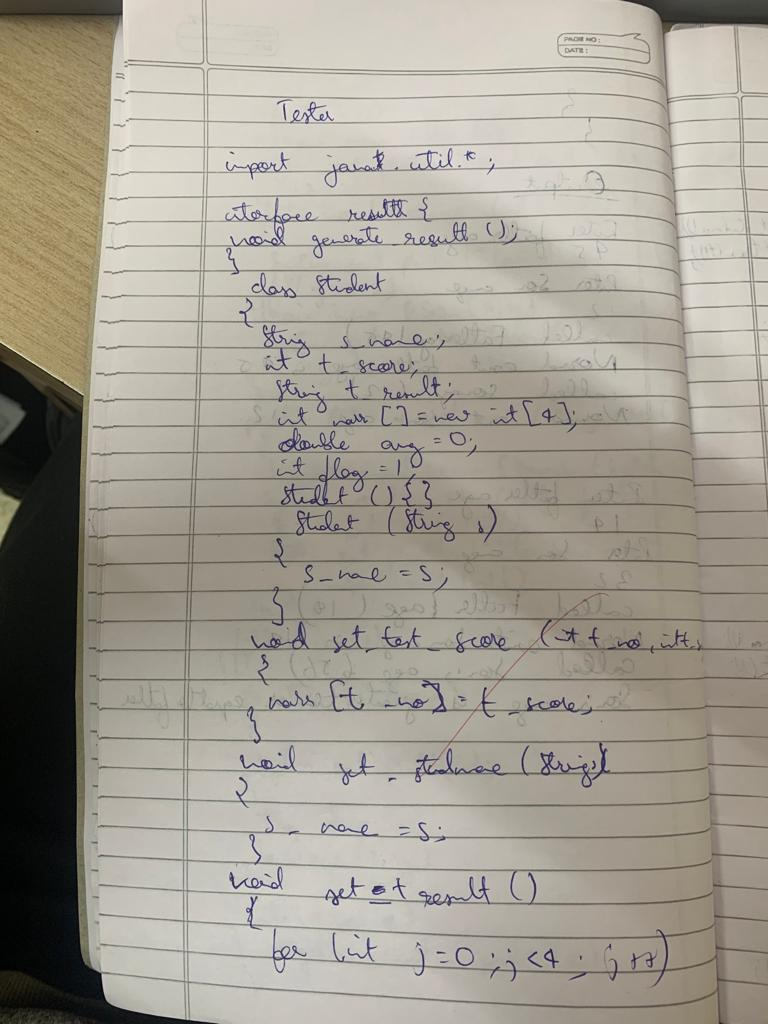 PAGE NO:
DATE:
Tester
import java. util.*;
interface result {
void generate_result ();
}
class Student
{
String s_name;
int t_score;
String t_result;
int narr [] = new int [4];
double avg = 0;
int flag = 1;
Student () { }
Student (String s)
{
s_name = s;
}
void set_test_score (int t_no, int t_s
{
narr [t_no] = t_score;
}
void set_studname (String s)
{
s_name = s;
}
void set_t_result ()
{
for (int j = 0 ; j < 4 ; j++)